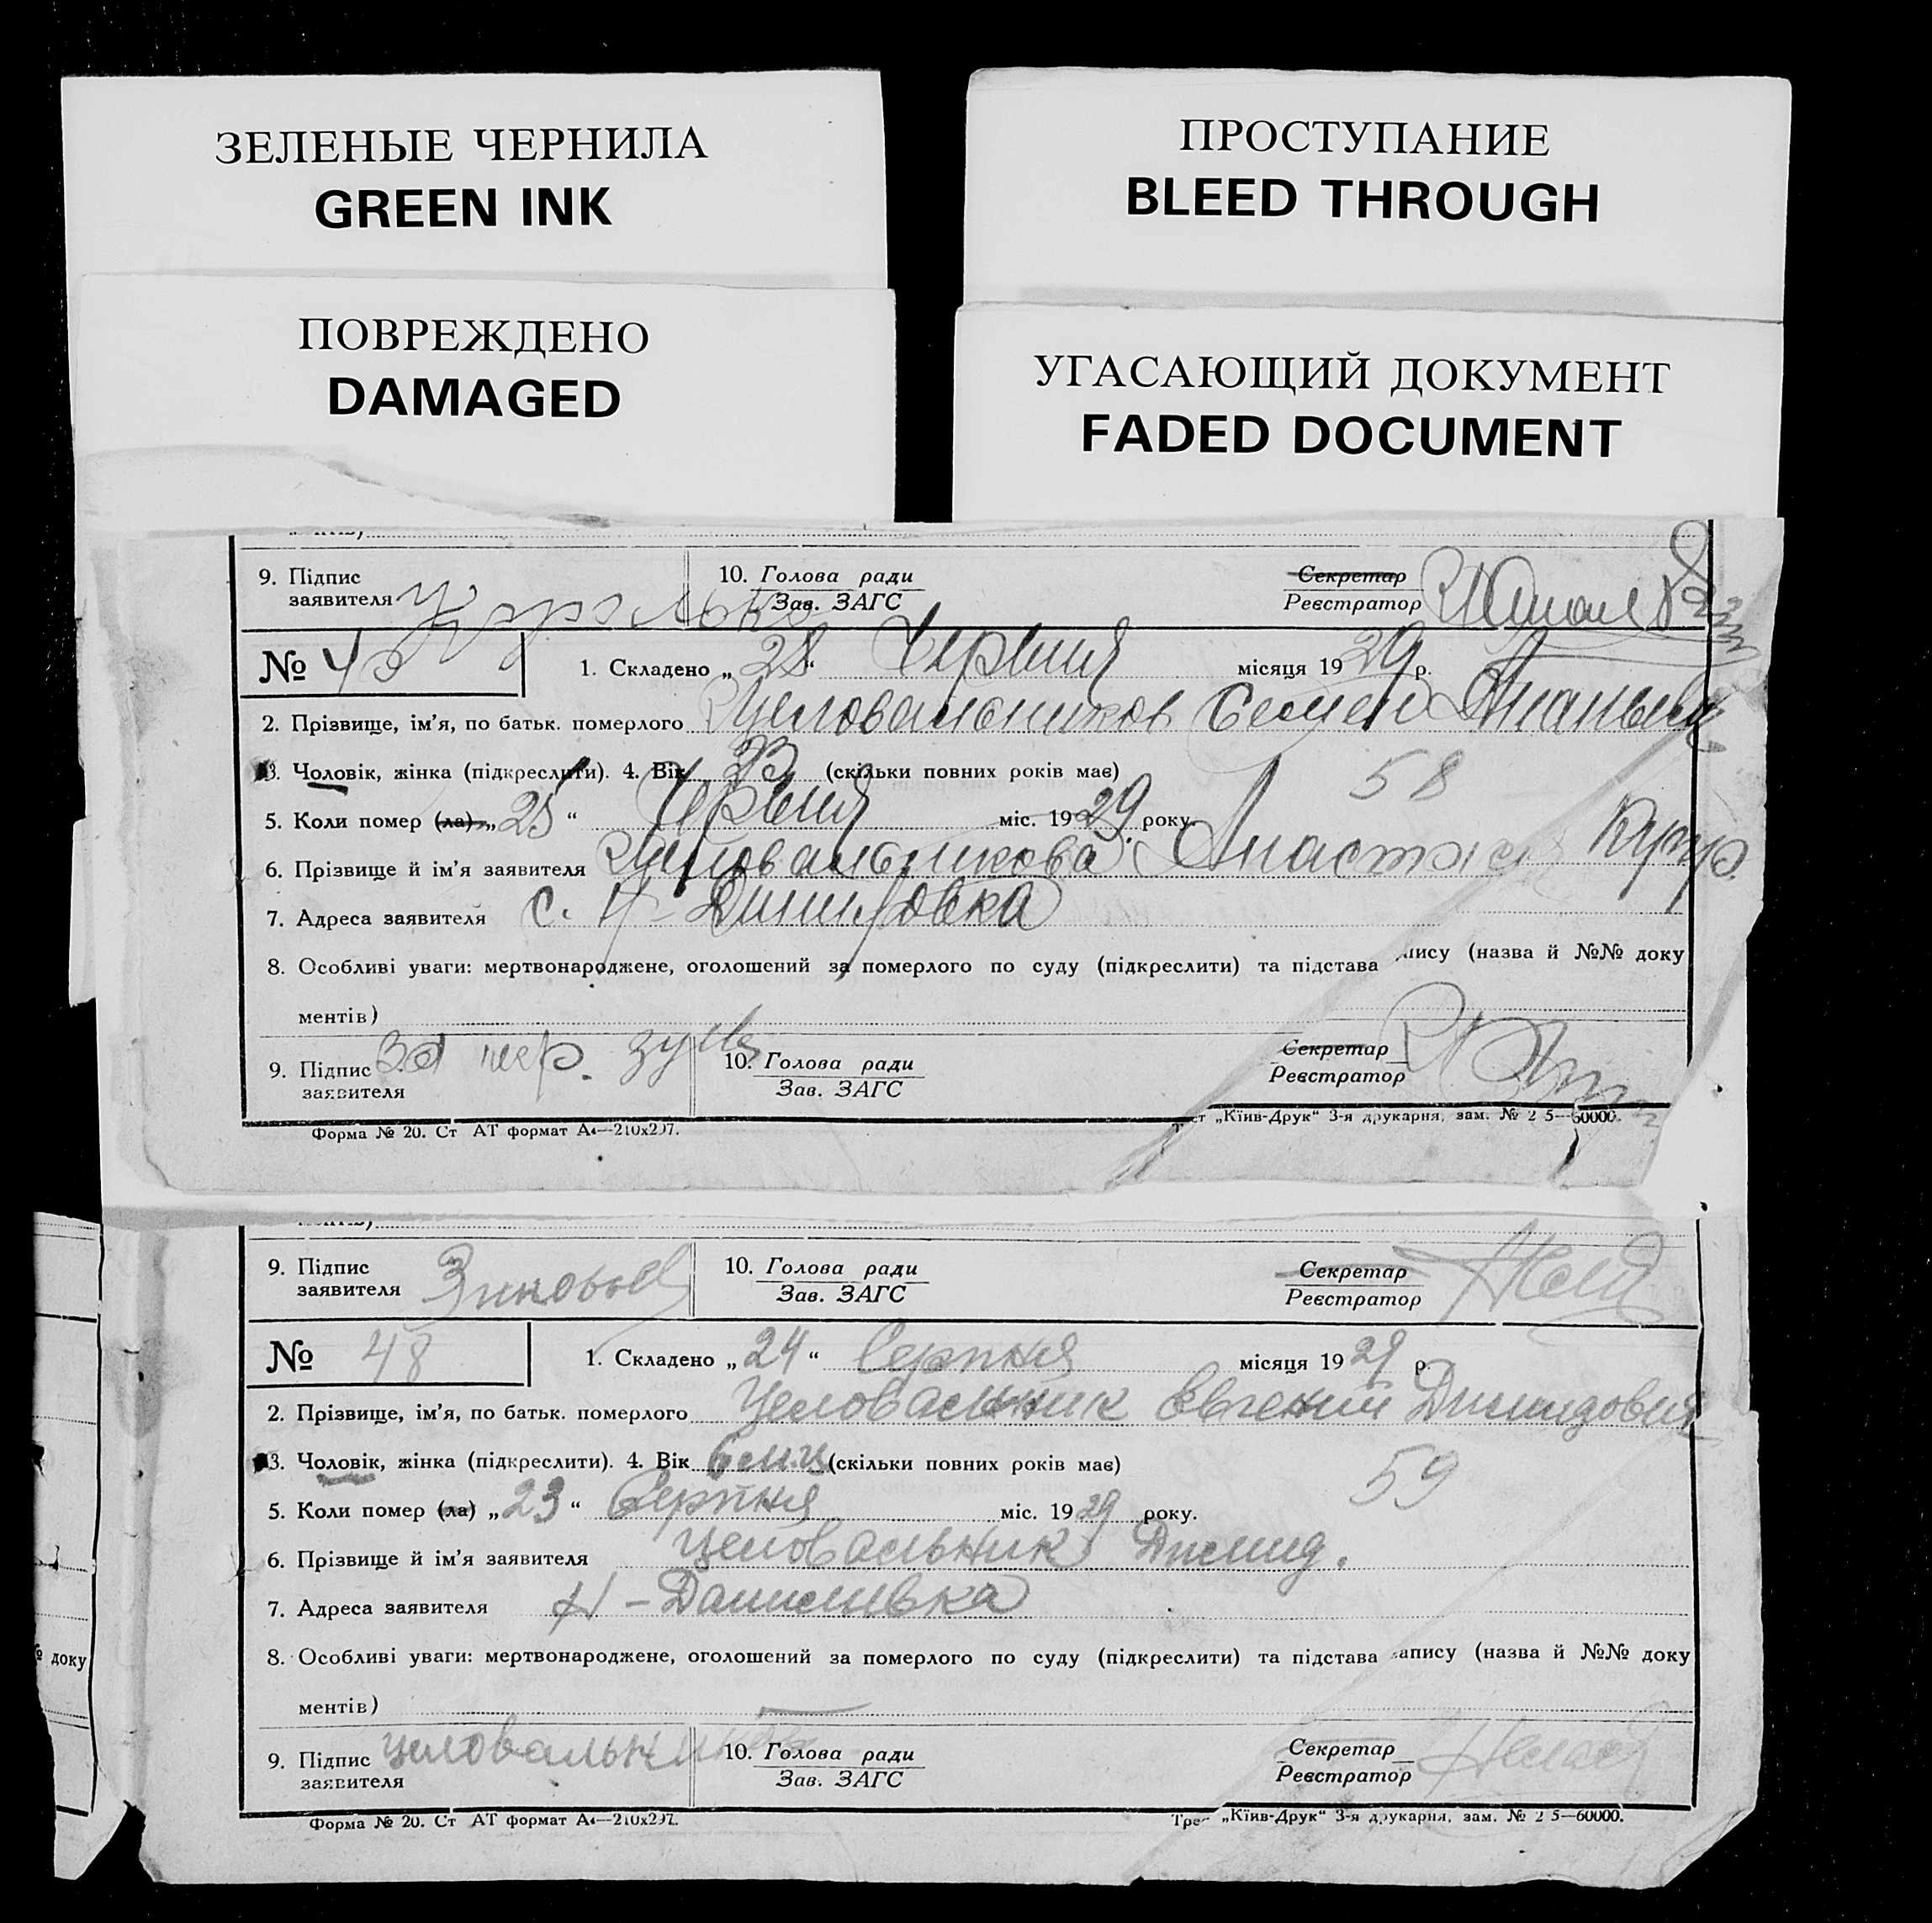 ЗЕЛЕНЫЕ ЧЕРНИЛА
GREEN INK
ПРОСТУПАНИЕ
BLEED THROUGH
ПОВРЕЖДЕНО
DAMAGED
УГАСАЮЩИЙ ДОКУМЕНТ
FADED DOCUMENT
9. Підпис заявителя
10. Голова ради Зав. ЗАГС
Секретар Реєстратор
№
1. Складено „28“ Червня місяця 1929 р.
2. Прізвище, ім'я, по батьк. померлого Целовальников Семен Ананьев
3. Чоловік, жінка (підкреслити). 4. Вік 33 (скільки повних років має)
58
5. Коли помер (ла) „25“ Червня міс. 1929 року.
6. Прізвище й ім'я заявителя Целовальникова Анастас
7. Адреса заявителя с. Н-
8. Особливі уваги: мертвонароджене, оголошений за померлого по суду (підкреслити) та підстава пису (назва й №№ доку
ментів)
9. Підпис заявителя За
10. Голова ради Зав. ЗАГС
Секретар Реєстратор
Форма № 20. Ст АТ формат А4—210х297.
ст „Київ-Друк“ 3-я друкарня, зам. № 2 5—60000.
9. Підпис заявителя Зиновьев
10. Голова ради Зав. ЗАГС
Секретар Реєстратор
№ 48
1. Складено „24“ Серпня місяця 1929 р.
2. Прізвище, ім'я, по батьк. померлого Целовальник Евгений Димидович
3. Чоловік, жінка (підкреслити). 4. Вік 6 мц (скільки повних років має)
59
5. Коли помер (ла) „23“ Серпня міс. 1929 року.
6. Прізвище й ім'я заявителя Целовальник Димид.
7. Адреса заявителя Н-Даниливка
8. Особливі уваги: мертвонароджене, оголошений за померлого по суду (підкреслити) та підстава запису (назва й №№ доку
ментів)
9. Підпис заявителя Целовальник
10. Голова ради Зав. ЗАГС
Секретар Реєстратор
Форма № 20. Ст АТ формат А4—210х297.
Трес „Київ-Друк“ 3-я друкарня, зам. № 2 5—60000.
доку